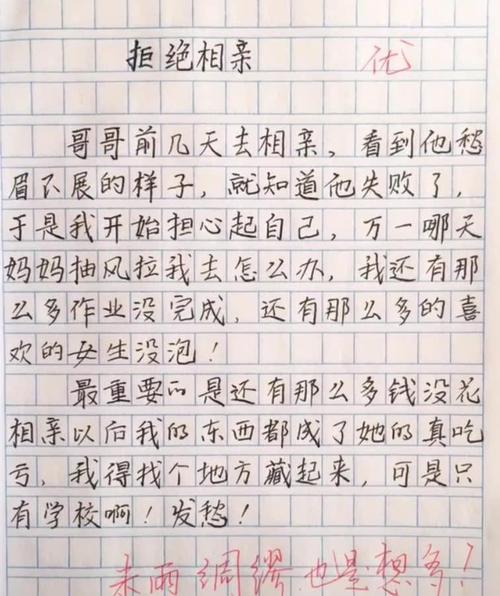 拒绝相亲 优
哥哥前几天去相亲，看到他愁
眉不展的样子，就知道他失败了，
于是我开始担心起自己，万一哪天
妈妈抽风拉我去怎么办，我还有那
么多作业没完成，还有那么多的喜
欢的女生没泡！
最重要的是还有那么多钱没花
相亲以后我的东西都成了她的真吃
亏，我得找个地方藏起来，可是只
有学校啊！发愁！
未雨绸缪也是想多！